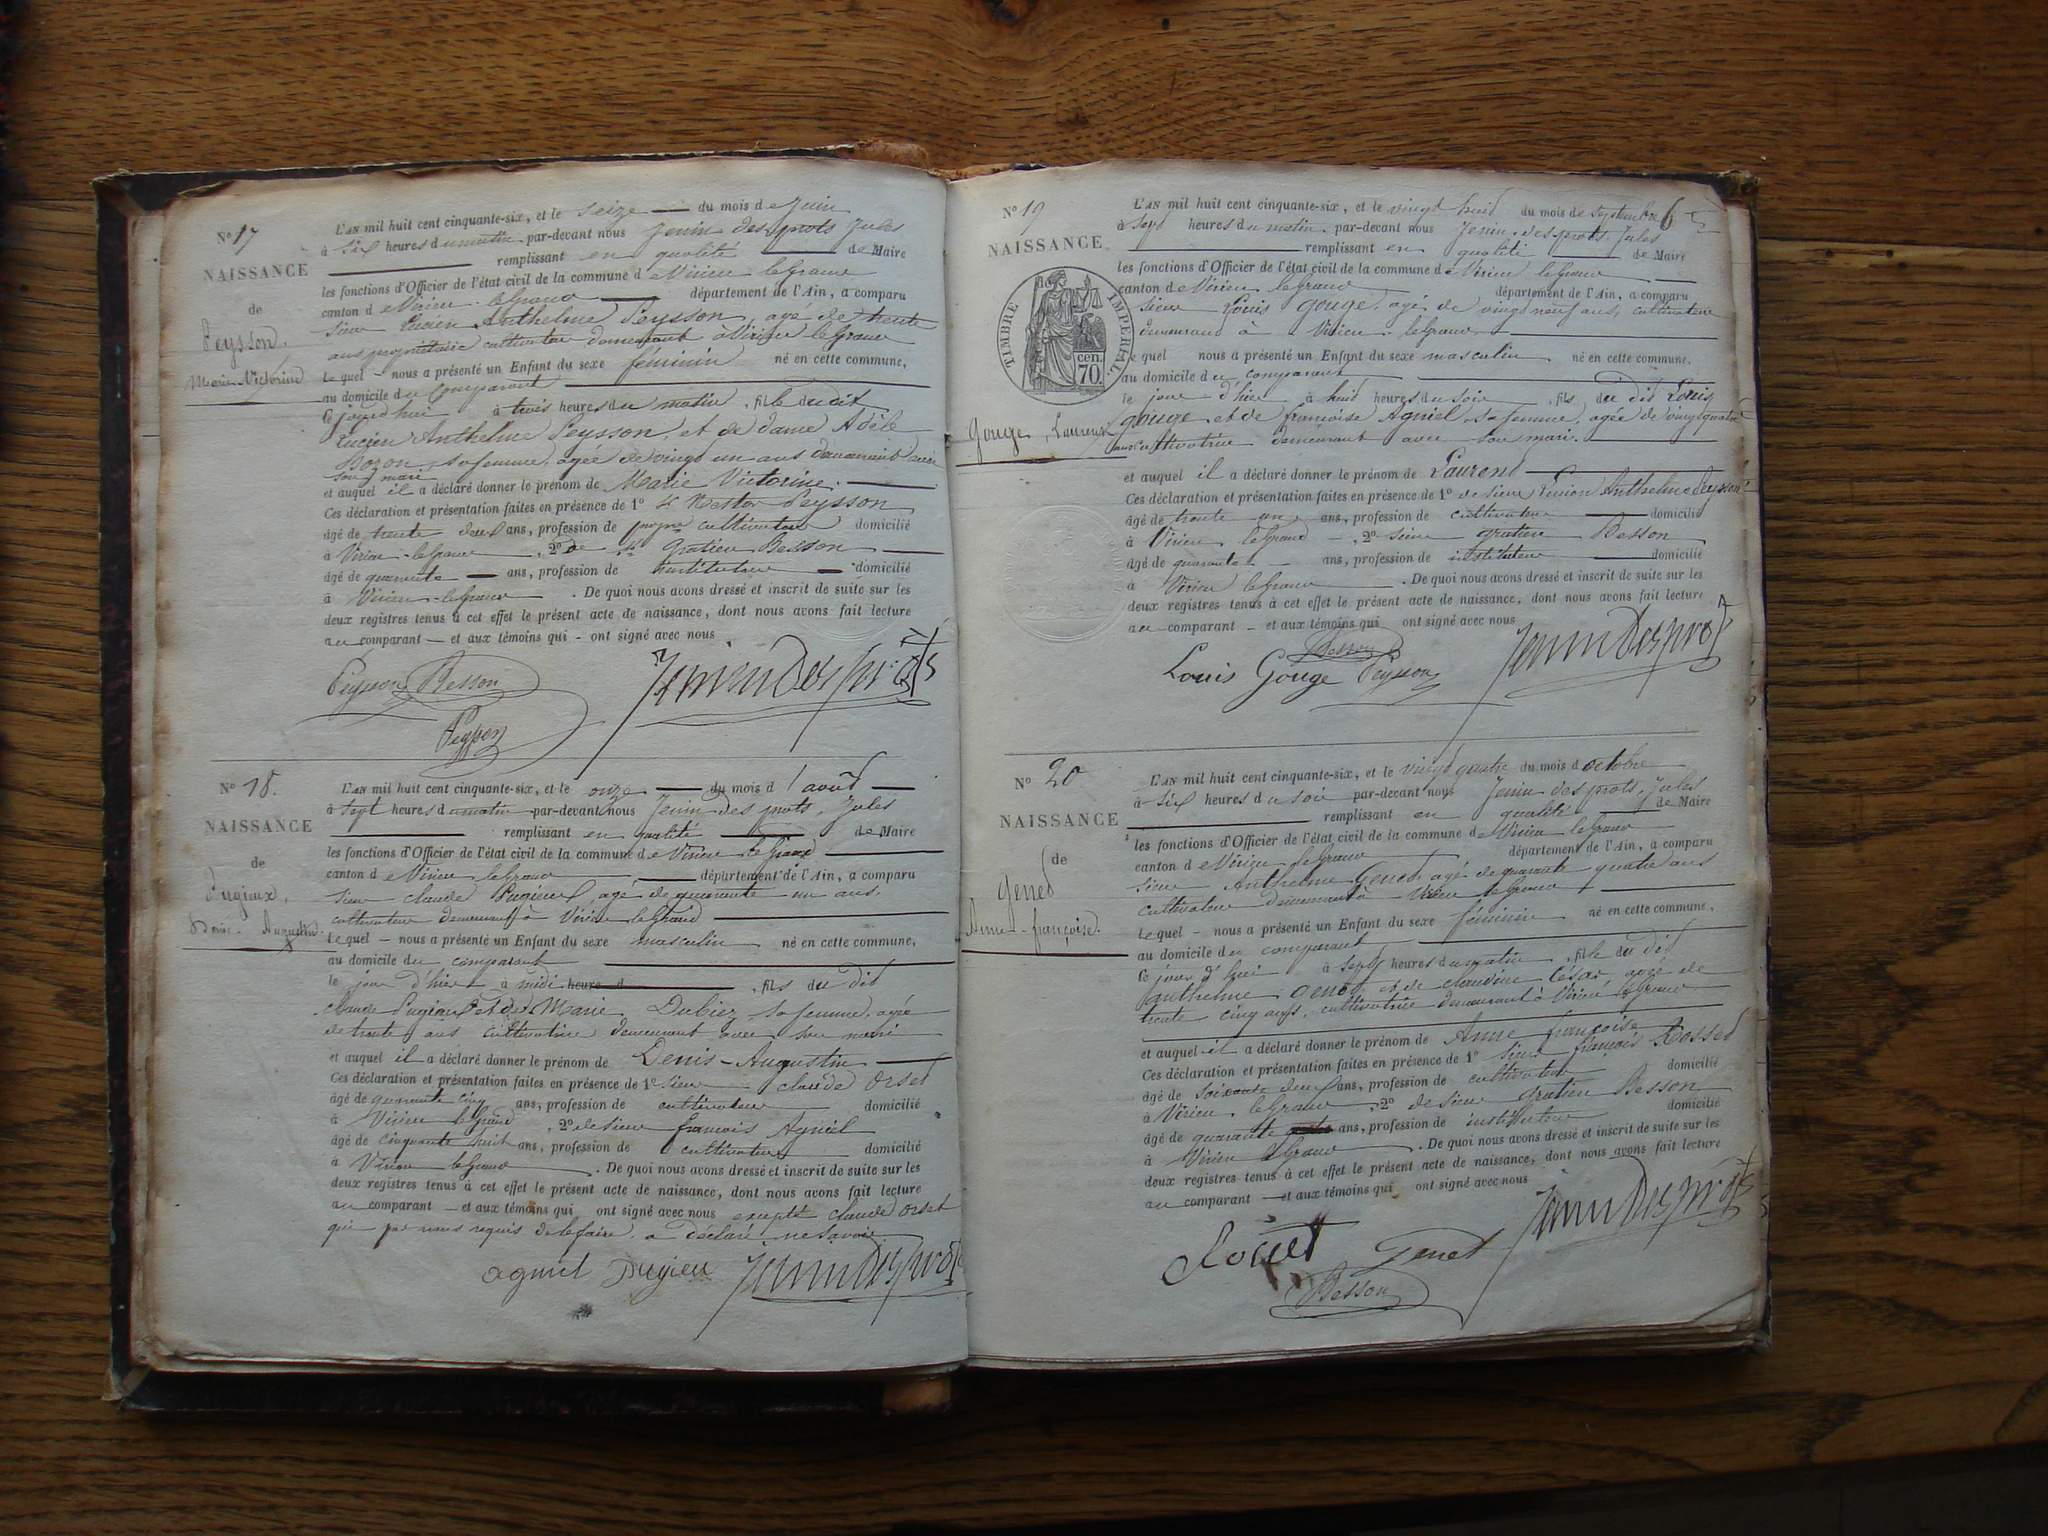 N° 17
NAISSANCE
de
Peysson.
Marie-Victorine
L'AN mil huit cent cinquante-six, et le seize du mois de Juin
à six heures du matin par-devant nous Jenin des prots Jules
remplissant en qualité de Maire
les fonctions d'Officier de l'état civil de la commune de Virieu le Grand
canton de Virieu-le Grand département de l'Ain, a comparu
sieur Lucien Anthelme Peysson, agé de trente
ans propriétaire cultivateur demeurant à Virieu le Grand
Le quel - nous a présenté un Enfant du sexe féminin né en cette commune,
au domicile du comparant
ce jourd'hui à trois heures du matin, fille du dit
Lucien Anthelme Peysson, et de dame Adèle
Bozon, sa femme, agée de vingt un ans demeurant avec
son mari
et auquel il a déclaré donner le prénom de Marie Victorine.
Ces déclaration et présentation faites en présence de 1° Sr Nestor Peysson
âgé de trente deux ans, profession de propre cultivateur domicilié
à Virieu-le Grand, 2° de Sr Gratien Besson
âgé de quarante ans, profession de instituteur domicilié
à Virieu-le Grand. De quoi nous avons dressé et inscrit de suite sur les
deux registres tenus à cet effet le présent acte de naissance, dont nous avons fait lecture
au comparant - et aux témoins qui - ont signé avec nous
Peysson Besson Jenin Desprots
Peysson
N° 18.
NAISSANCE
de
Pugieux,
Denis-Augustin.
L'AN mil huit cent cinquante-six, et le onze du mois d'août
à sept heures du matin par-devant nous Jenin des prots, Jules
remplissant en qualité de Maire
les fonctions d'Officier de l'état civil de la commune de Virieu le Grand
canton de Virieu le Grand département de l'Ain, a comparu
sieur claude Pugieux, agé de quarante un ans.
cultivateur demeurant à Virieu le Grand
Le quel - nous a présenté un Enfant du sexe masculin né en cette commune,
au domicile du comparant
le jour d'hier à midi heure, fils du dit
claude Pugieux et de Marie Dubiez sa femme, agée
de trente ans cultivatrice demeurant avec son mari
et auquel il a déclaré donner le prénom de Denis-Augustin
Ces déclaration et présentation faites en présence de 1° sieur claude Orset
âgé de quarante cinq ans, profession de cultivateur domicilié
à Virieu le Grand, 2° de sieur françois Agniel
âgé de cinquante huit ans, profession de cultivateur domicilié
à Virieu le Grand. De quoi nous avons dressé et inscrit de suite sur les
deux registres tenus à cet effet le présent acte de naissance, dont nous avons fait lecture
au comparant - et aux témoins qui ont signé avec nous excepté claude Orset
qui par nous requis de le faire, a déclaré ne savoir.
agniel Pugieu Jenin Desprots
N° 19
NAISSANCE
TIMBRE IMPERIAL.
cen.
70.
Gouge, Laurent
L'AN mil huit cent cinquante-six, et le vingt huit du mois de septembre 6
à sept heures du matin par-devant nous Jenin des prots Jules
remplissant en qualité de Maire
les fonctions d'Officier de l'état civil de la commune de Virieu le Grand
canton de Virieu le Grand département de l'Ain, a comparu
sieur Louis Gouge, agé de vingt neuf ans, cultivateur
demeurant à Virieu-le Grand
Le quel nous a présenté un Enfant du sexe masculin né en cette commune,
au domicile du comparant
le jour d'hier à huit heures du soir, fils du dit Louis
gouge et de françoise Agniel sa femme, agée de vingt quatre
ans cultivatrice demeurant avec son mari.
et auquel il a déclaré donner le prénom de Laurent
Ces déclaration et présentation faites en présence de 1° de sieur Lucien Anthelme Peysson
âgé de trente un ans, profession de cultivateur domicilié
à Virieu le Grand, 2° sieur gratien Besson
âgé de quarante ans, profession de instituteur domicilié
à Virieu le Grand. De quoi nous avons dressé et inscrit de suite sur les
deux registres tenus à cet effet le présent acte de naissance, dont nous avons fait lecture
au comparant - et aux témoins qui ont signé avec nous
Besson
Louis Gouge Peysson Jenin Desprots
N° 20
NAISSANCE
de
Genet
Anne-françoise.
L'AN mil huit cent cinquante-six, et le vingt quatre du mois d'octobre
à six heures du soir par-devant nous Jenin des prots, Jules
remplissant en qualité de Maire
les fonctions d'Officier de l'état civil de la commune de Virieu le Grand
canton de Virieu le Grand département de l'Ain, a comparu
sieur Anthelme Genet agé de quarante quatre ans
cultivateur demeurant à Virieu le Grand
Le quel - nous a présenté un Enfant du sexe féminin né en cette commune,
au domicile du comparant
ce jour d'hui à sept heures du matin, fille du dit
anthelme Genet et de claudine César, agée de
trente cinq ans, cultivatrice demeurant à Virieu le Grand
et auquel il a déclaré donner le prénom de Anne françoise
Ces déclaration et présentation faites en présence de 1° sieur françois Rosset
âgé de soixante deux ans, profession de cultivateur domicilié
à Virieu le Grand, 2° de sieur gratien Besson
âgé de quarante ans, profession de instituteur domicilié
à Virieu le Grand. De quoi nous avons dressé et inscrit de suite sur les
deux registres tenus à cet effet le présent acte de naissance, dont nous avons fait lecture
au comparant - et aux témoins qui ont signé avec nous
Genet Jenin Desprots
Besson